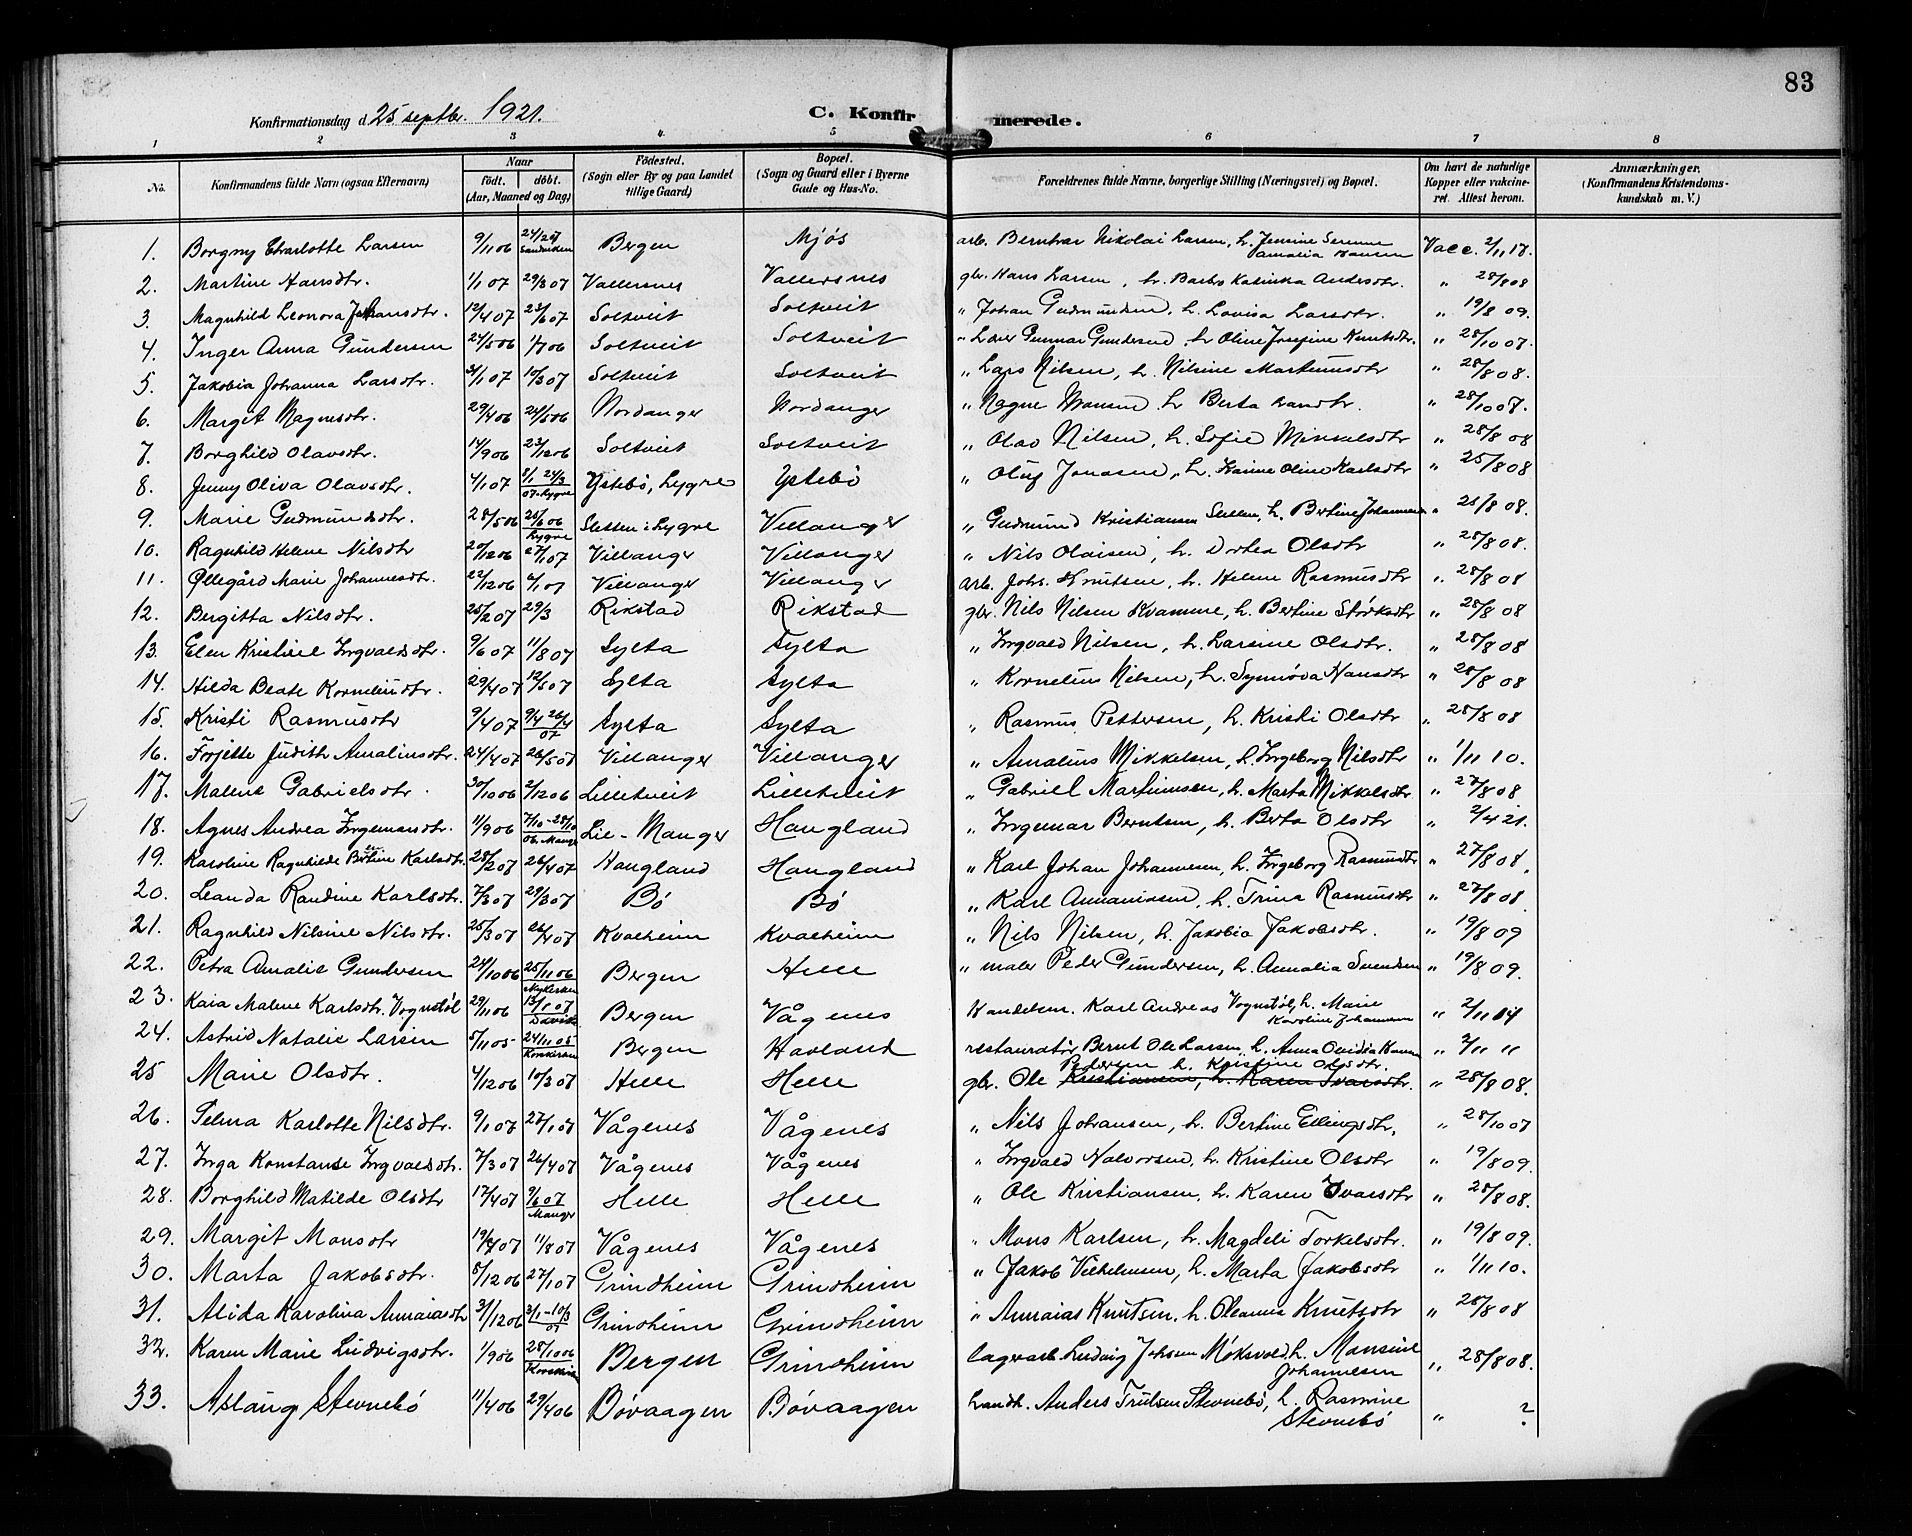 83
Konfirmationsdag d. 25 septbr. 1921.
C. Konfirmerede.
1 2 3 4 5 6 7 8
No. Konfirmandens fulde Navn (ogsaa Efternavn) Naar født. døbt. (Aar, Maaned og Dag) Fødested. (Sogn eller By og paa Landet tillige Gaard) Bopæl. (Sogn og Gaard eller i Byerne Gade og Hus-No. Forældrenes fulde Navne, borgerlige Stilling (Næringsvei) og Bopæl. Om havt de naturlige Kopper eller vakcineret. Attest herom. Anmærkninger. (Konfirmandens Kristendomskundskab m. V.)
1. Borgny Charlotte Larsen 9/11 06 Sandviken Bergen Mjøs arb. Berntvar Nikolai Larsen, h. Jensine Amalia Hansen Vacc. 2/11 17.
2. Martine Hansdtr. 1/1 07 29/3 07 Vallersnes Vallersnes gbr. Hans Larsen, h. Barbro Kalinka Andersdtr. " 28/8 08
3. Magnhild Leonora Johansdtr. 12/4 07 23/6 07 Soltveit Soltveit " Johan Gudmundsen, h. Lovisa Larsdtr. " 19/8 09.
4. Inger Anna Gundersen 24/5 06 1/7 06 Soltveit Soltveit " Lærer Gunnar Gundersen, h. Oline Josefine Knutsdtr. " 28/10 07.
5. Jakobia Johanna Larsdtr. 31/1 07 10/3 07 Soltveit Soltveit " Lars Nilsen, h. Nilsine Martinusdtr " 28/8 08.
6. Margit Magnesdtr. 29/4 06 24/5 06 Nordanger Nordanger " Magne Monsen h. Berta Larsdtr. " 28/10 07.
7. Borghild Olavsdtr. 14/9 06 23/12 06 Soltveit Soltveit " Olav Nilsen, h. Sofie Mikkelsdtr " 28/8 08
8. Jenny Oliva Olavsdtr. 4/1 07 8/1 24/3 07. Lygre Ystebø, Lygre Ystebø " Oluf Jonasen, h. Karine Oline Karlsdtr " 25/8 08
9. Marie Gudmundsdtr. 28/5 06 25/6 06 Lygre Sletten i Lygre Villanger " Gudmund Kristiansen Sletten, h. Bertine Johannesen " 28/8 08.
10. Ragnhild Helene Nilsdtr 20/12 06 27/1 07 Villanger Villanger " Nils Olaisen, h. Dortea Olsdtr " 28/8 08.
11. Øllegård Marie Johannesdtr. 22/12 06 6/1 07 Villanger Villanger arb. Johs. Knutsen, h. Helene Rasmusdtr " 28/8 08
12. Bergitta Nilsdtr. 25/2 07 29/3 Rikstad Rikstad gbr. Nils Nilsen Kvamme, h. Bertine Størksdtr " 28/8 08
13. Elen Kristine Ingvaldsdtr. 9/6 07 11/8 07 Sylta Sylta " Ingvald Nilsen, h. Larsine Olsdtr. " 28/8 08
14. Hilda Beate Korneliusdtr. 29/4 07 12/5 07 Sylta Sylta " Kornelius Nilsen, h. Synnøva Hansdtr " 28/8 08
15. Kristi Rasmusdtr 9/4 07 9/4 26/4 07 Sylta Sylta " Rasmus Pettersen, h. Kristi Olsdtr " 28/8 08
16. Frojette Judith Amaliusdtr. 24/4 07 26/5 07 Villanger Villanger " Amalius Mikkelsen, h. Ingeborg Nilsdtr " 1/11 10.
17. Malene Gabrielsdtr. 30/10 06 2/12 06 Lilletveit Lilletveit " Gabriel Martinusen, h. Marta Mikkelsdtr " 27/8 08
18. Agnes Andrea Ingemarsdtr. 11/9 06 7/10 - 28/10 06. Manger Lie - Manger Haugland " Ingemar Berntsen, h. Berta Olsdtr " 2/4 21.
19. Karoline Ragnhilde Bertine Karlsdtr. 28/2 07 26/4 07 Haugland Haugland " Karl Johan Johannesen, h. Ingeborg Rasmusdtr " 27/8 08.
20. Leanda Randine Karlsdtr. 7/3 07 29/3 07 Bø Bø " Karl Annaniasen, h. Trina Rasmusdtr " 27/8 08.
21. Ragnhild Nilsine Nilsdtr. 25/3 07 26/4 07 Kvalheim Kvalheim " Nils Nilsen, h. Jakobia Jakobsdtr. " 19/8 09
22. Petra Amalie Gundersen 24/10 06 25/11 06 Nykirken Bergen Helle " maler Peder Gundersen, h. Annalia Svendsen " 19/8 09.
23. Kaia Malene Karlsdtr. Vognstøl 29/11 06 13/1 07 Bergen Vågenes Handelsm. Karl Andreas Vognstøl, h. Marie Karoline Johannesen " 2/11 14
24. Astrid Natalie Larsen 5/11 05 24/11 05 Korskirken Bergen Havland restauratør Bernt Ole Larsen, h. Anna Ovidia Hansen " 2/11 11
25 Marie Olsdtr. 4/12 06 10/3 07 Helle Helle gbr. Ole Pedersen h. Kristine Olsdtr. Kristiansen, h. Karen Ivarsdtr. " 28/8 08.
26. Selma Karlotte Nilsdtr. 9/1 07 27/1 07 Vågenes Vågenes " Nils Johansen, h. Bertine Ellingsdtr. " 28/10 07
27. Inga Konstanse Ingvaldsdtr. 7/3 07 26/4 07 Vågenes Vågenes " Ingvald Halvorsen, h. Kristine Olsdtr " 19/8 09.
28. Borghild Matilde Olsdtr 17/4 07 9/6 07 Manger Helle Helle " Ole Kristiansen, h. Karen Ivarsdtr " 28/8 08.
29. Margit Monsdtr 11/8 07 Vågenes Vågenes " Mons Karlsen, h. Magdeli Torkelsdtr. " 19/8 09.
30. Marta Jakobsdtr. 5/12 06 27/1 07 Grindheim Grindheim " Jakob Vilhelmsen, h. Marta Jakobsdtr " 1/11 10.
31. Alida Karolina Annaiasdtr 31/12 06 3/1 - 10/3 07 Grindheim Grindheim " Annaias Knutsen, h. Oleanna Knutsdtr " 28/8 08
32. Karen Marie Ludvigsdtr. 1/9 06 28/10 06 Korskirken Bergen Grindheim lagerarb. Ludvig Johsen Møksvold, h. Monsine Johannesen " 28/8 08.
33. Aslaug Stevnebø 11/4 06 29/4 06 Bøvaagen Bøvaagen Landh. Anders Trulsen Stevnebø, h. Rasmine Stevnebø " ?